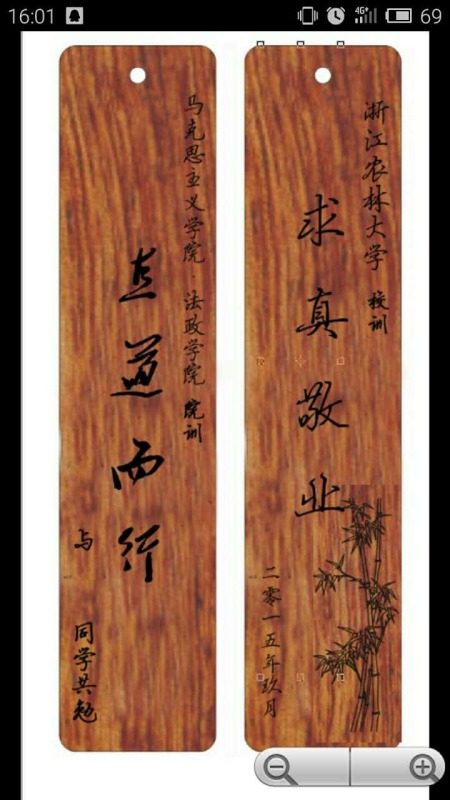 16:01
4G
69
浙江农林大学 校训
求真敬业
二零一五年玖月
马克思主义学院·法政学院 院训
直道而行
与
同学共勉